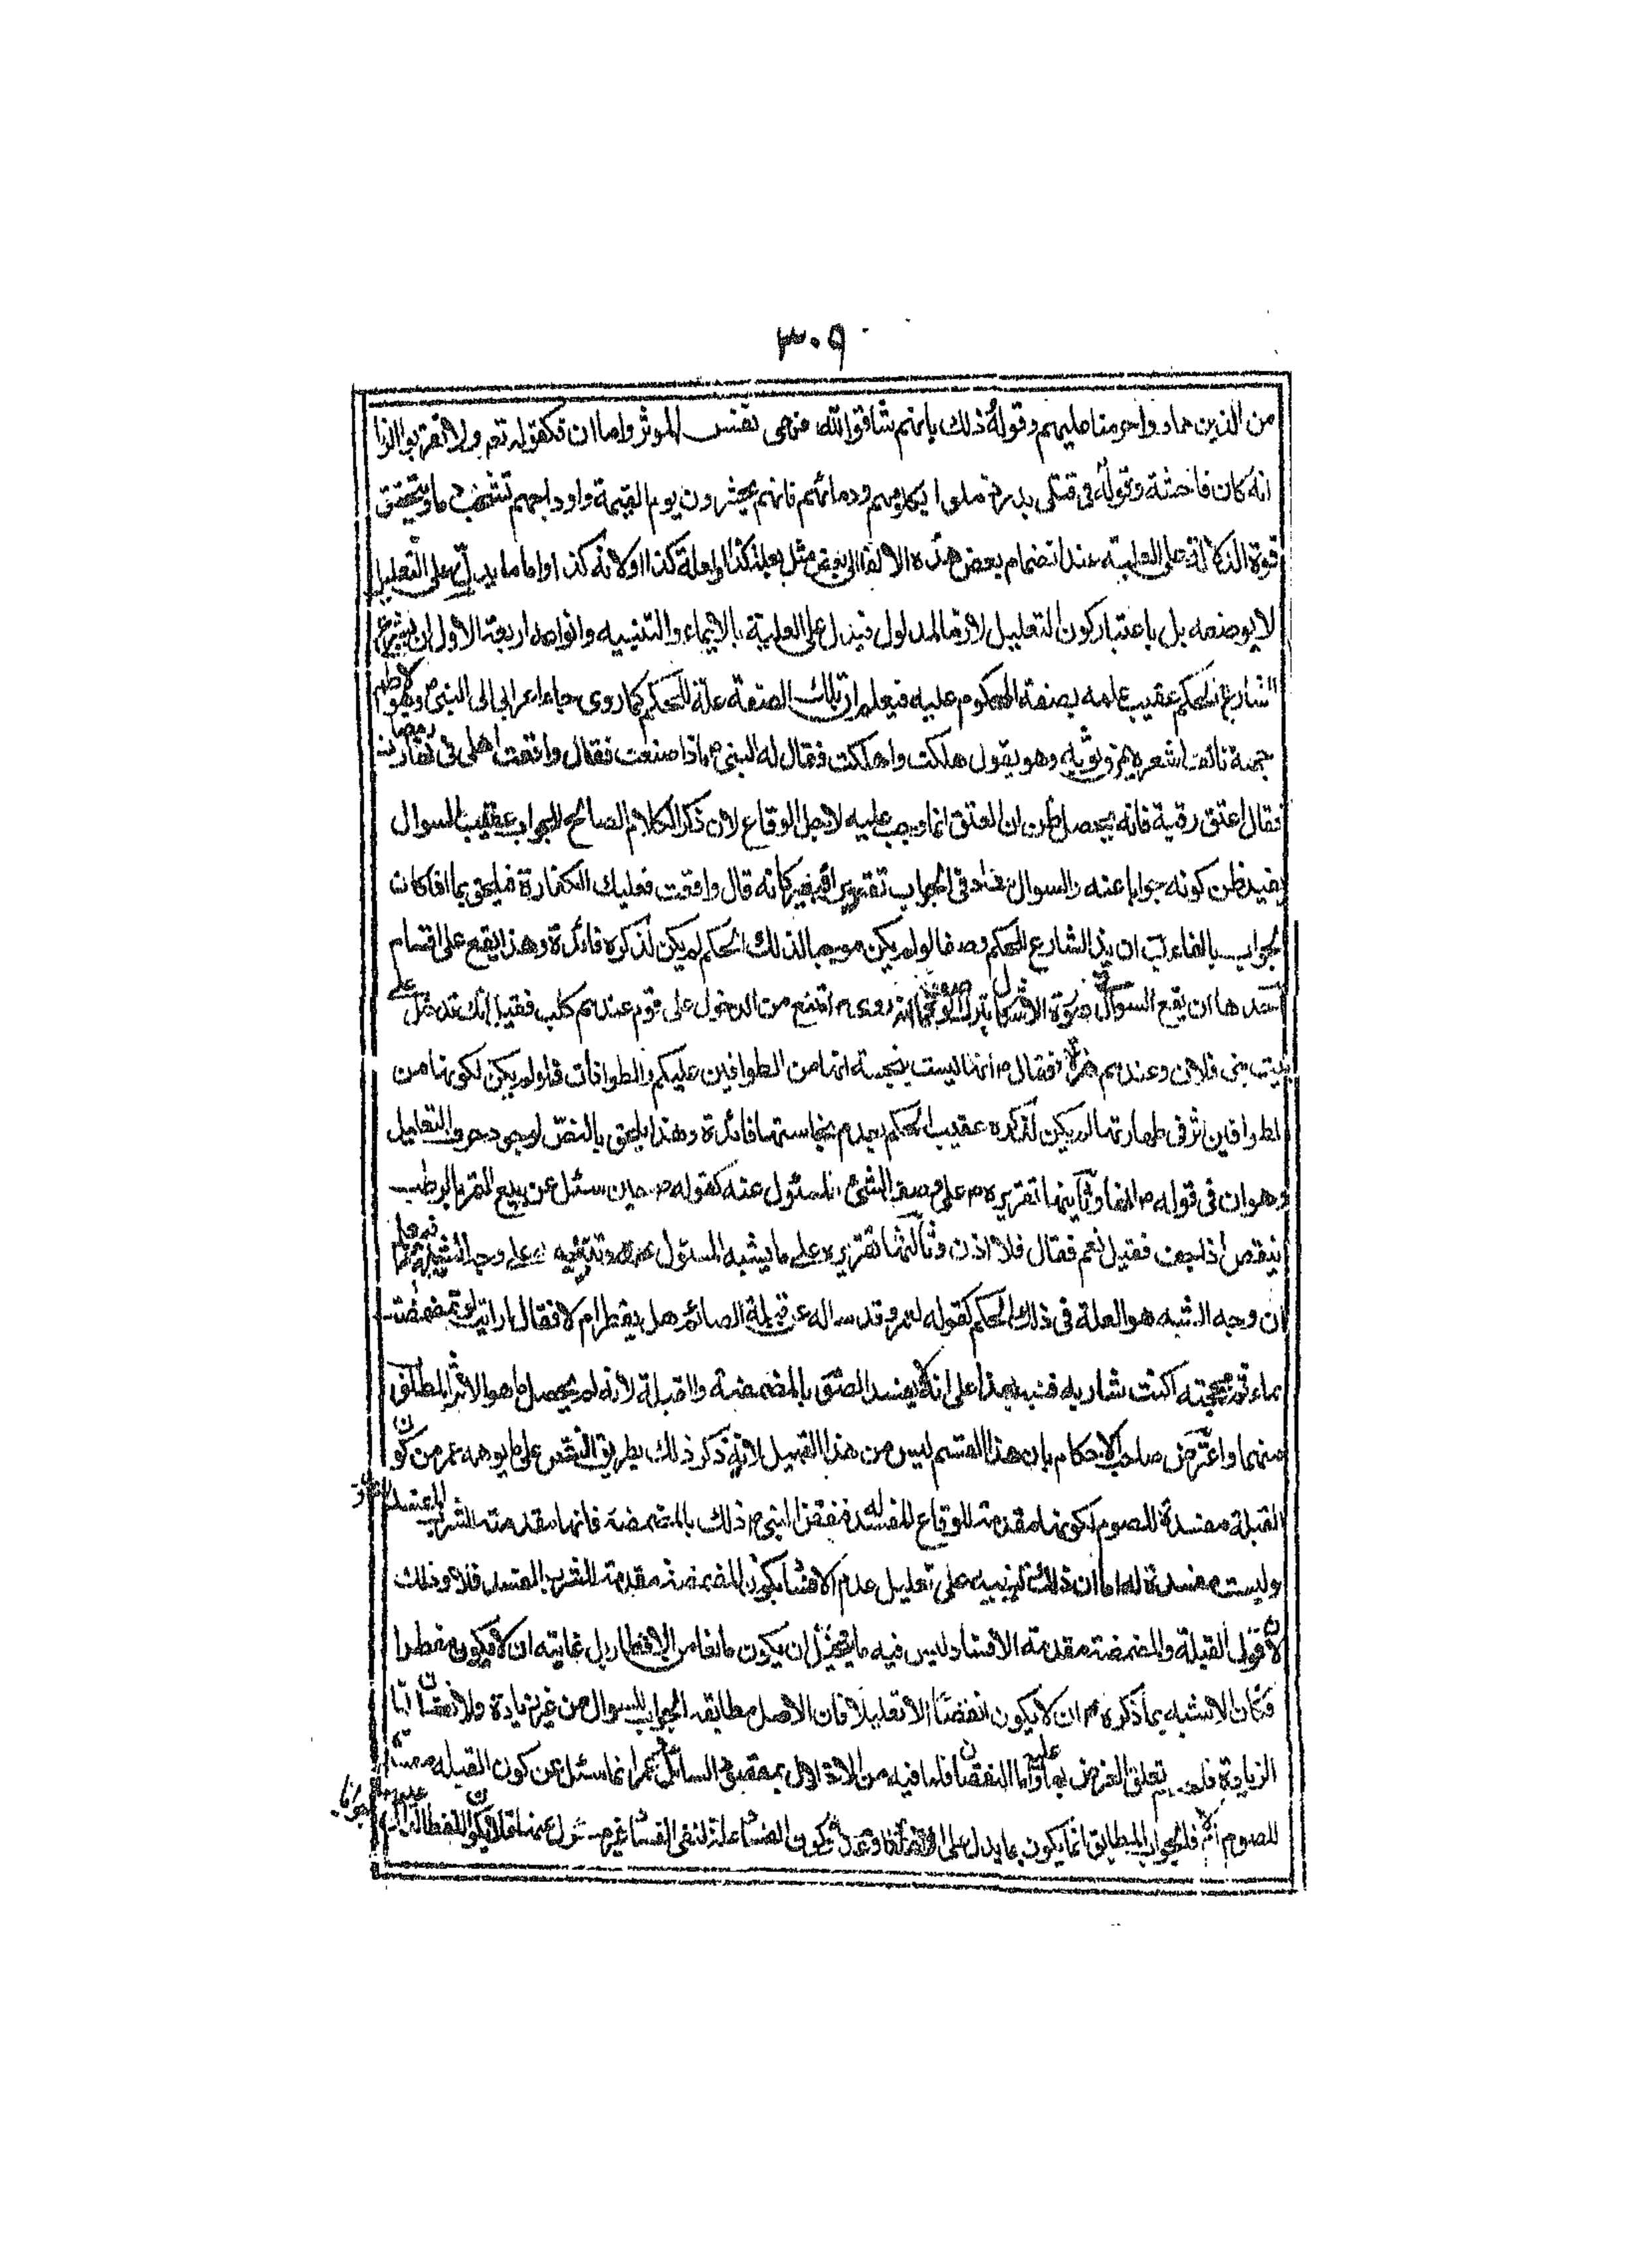 ٣٠٩
من الذين هادوا حرمنا عليهم وقوله ذلك بانهم شاقوا الله فهى نفس الموثر واما ان فكقوله تعم ولا تقربوا الزنا
انه كان فاحشة وقوله فى قتلى بدر زملوا بكلومهم ودمائهم فانهم يحشرون يوم القيمة واوداجهم تشخب دما ويتحقق
قوة الدلالة على العلية عند انضمام بعض هذه الالفا الى بعض مثل بعلة كذا او لعلة كذا او لانه كذا واما ما يدل على التعليل
لا بوضعه بل باعتبار كون التعليل لازما لمدلول فيدل على العلية بالايماء والتنبيه وانواعه اربعة الاول ان يشرع
الشارع الحكم عقيب علمه بصفة المحكوم عليه فيعلم ان تلك الصفة علة للحكم كما روى جاء اعرابى الى النبى م وهو يلطم
وجهه ناتف شعره وهو يقول هلكت واهلكت فقال له النبى م ماذا صنعت فقال واقعت اهلى فى نهار رمضان
فقال اعتق رقبة فانه يحصل ظن ان العتق انما وجب عليه لاجل الوقاع لان ذكر الكلام الصالح للجواب عقيب السوال
يفيد ظن كونه جوابا عنه والسوال معاد فى الجواب تقديرا فيصير كانه قال واقعت فعليك الكفارة فيلحق بما اذا كان
الجواب بالفاء ب ان يذكر الشارع للحكم وصفا لو لم يكن موجبا لذلك الحكم لم يكن لذكره فائدة وهذا يقع على اقسام
احدها ان يقع السوال فى صورة الاشكال كما انه روى م امتنع من الدخول على قوم عندهم كلب فقيل انك تدخل على
بيت بنى فلان وعندهم هرة فقال م انها ليست بنجسة انها من الطوافين عليكم والطوافات فلو لم يكن لكونها من
الطوافين اثر فى طهارتها لم يكن لذكره عقيب الحكم بعدم نجاستها فائدة وهذا يلحق بالنص لوجود حرف التعليل
وهو ان فى قوله م انها وثانيها تقريره م على وصف الشىء المسئول عنه كقوله م حين سئل عن بيع التمر بالرطب
اينقص اذا جف فقيل نعم فقال فلا اذن وثالثها تقريره على ما يشبه المسئول عنه وتنبيهه على وجه الشبه فيعلم
ان وجه الشبه هو العلة فى ذلك الحكم كقوله لعمر وقد ساله عن قبلة الصائم هل يفطر ام لا فقال ارايت لو تمضمضت
بماء ثم مججته اكنت شاربه فنبه بهذا على انه لا يفسد الصوم بالمضمضة والقبلة لانه لم يحصل ما هو الاثر المطلوب
منهما واعترض صاحب الاحكام بان هذا القسم ليس من هذا القبيل لانه ذكر ذلك بطريق النقض على ما يوهمه عمر من كون
القبلة مفسدة للصوم لكونها مقدمة للوقاع المفسد له فنقض النبى م ذلك بالمضمضة فانها مقدمته للشرب المفسد
وليست مفسدة له اما ان ذلك تنبيه على تعليل عدم الافساد بكون المضمضة مقدمة للشرب المفسد فلا وذلك
لان قول القبلة والمضمضة مقدمة الافساد ليس فيه ما يتخيل ان يكون مانعا من الافطار بل غايته ان لا يكون مفطرا
فكان الاشبه بما ذكره م ان لا يكون نقضا الا تعليلا فان الاصل مطابقة الجواب للسوال من غير زيادة ولا نقصان اما
الزيادة فلعدم تعلق الغرض بها واما النقصان فلما فيه من الاخلال بمقصود السائل وعمر انما سئل عن كون القبلة مفسدة
للصوم ام لا فالجواب المطابق انما يكون بما يدل على الافساد وعدمه وكون الفساد علة لنفى الفساد غير مسئول عنه فلا يكون اللفظ الدال